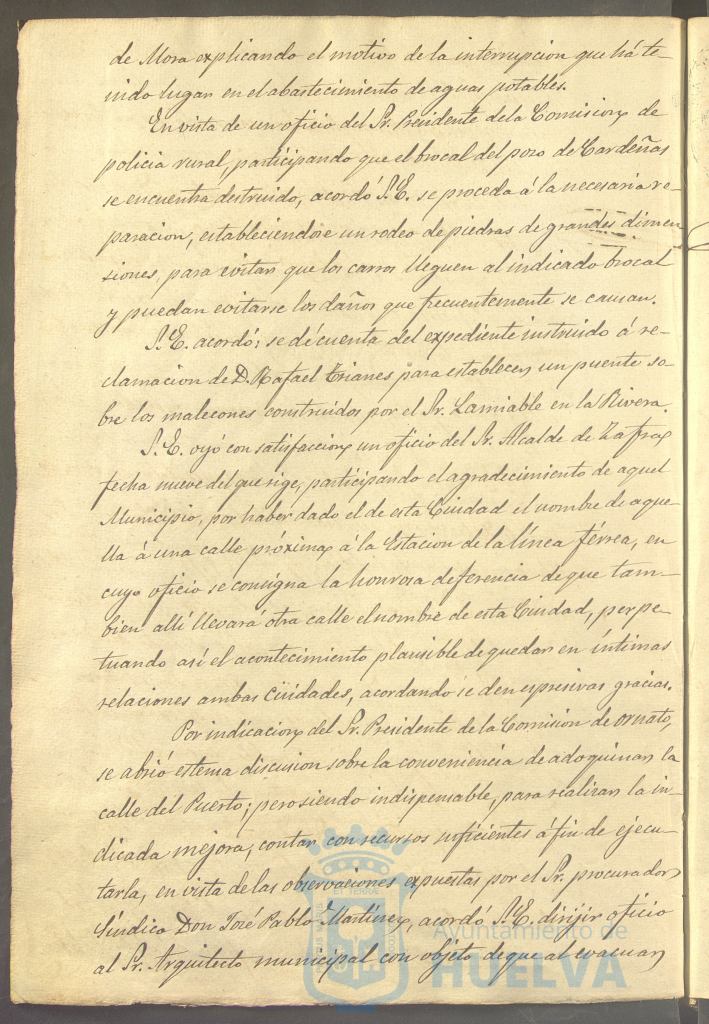 de Mora explicando el motivo de la interrupcion que há te-
nido lugar en el abastecimiento de aguas potables.
En vista de un oficio del Sr. Presidente de la Comision de
policia rural, participando que el brocal del pozo de Cardeñas
se encuentra destruido, acordó S.E. se proceda á la necesaria re-
paracion, estableciendose un rodeo de piedras de grandes dimen
siones, para evitar que los carros lleguen al indicado brocal
y puedan evitarse los daños que frecuentemente se causan.
S.E. acordó; se dé cuenta del expediente instruido á re-
clamacion de D. Rafael Trianes para establecer un puente so-
bre los malecones construidos por el Sr. Lamiable en la Rivera.
S.E. oyó con satisfaccion un oficio del Sr. Alcalde de Zafra
fecha nueve del que rige, participando el agradecimiento de aquel
Municipio, por haber dado el de esta Ciudad el nombre de aque-
lla á una calle próxima á la Estacion de la línea férrea, en
cuyo oficio se consigna la honrosa deferencia de que tam-
bien allí llevará otra calle el nombre de esta Ciudad, perpe-
tuando así el acontecimiento plausible de quedar en íntimas
relaciones ambas ciudades, acordando se den espresivas gracias.
Por indicacion del Sr. Presidente de la Comision de ornato,
se abrió estensa discusion sobre la conveniencia de adoquinar la
calle del Puerto; pero siendo indispensable, para realizar la in-
dicada mejora, contar con recursos suficientes á fin de ejecu-
tarla, en vista de las observaciones expuestas por el Sr. procurador
Síndico Don José Pablo Martinez, acordó S.E. dirijir oficio
al Sr. Arquitecto municipal con objeto de que al evacuar
Ayuntamiento de
HUELVA